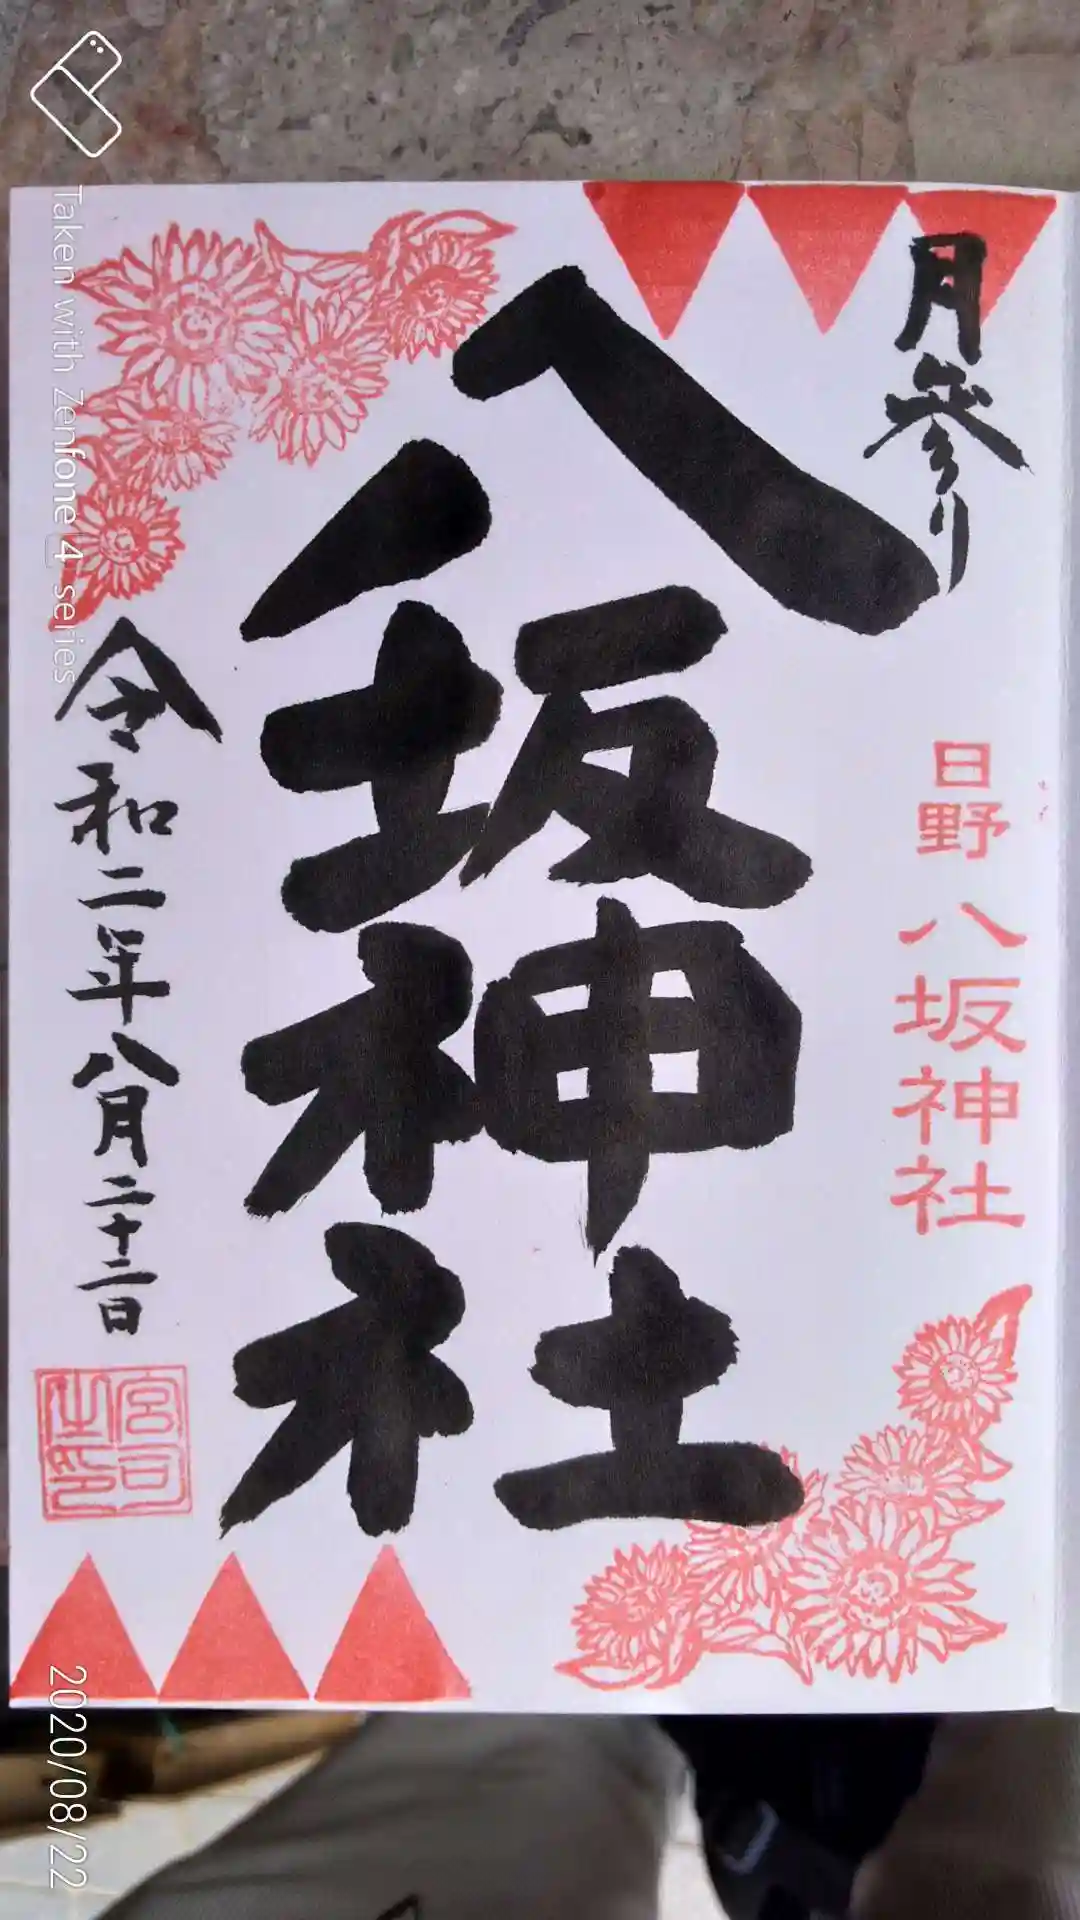 月参り
日野 八坂神社
八坂神社
令和二年八月二十二日
宮司
之印
Taken with Zenfone 4 series
2020/08/22